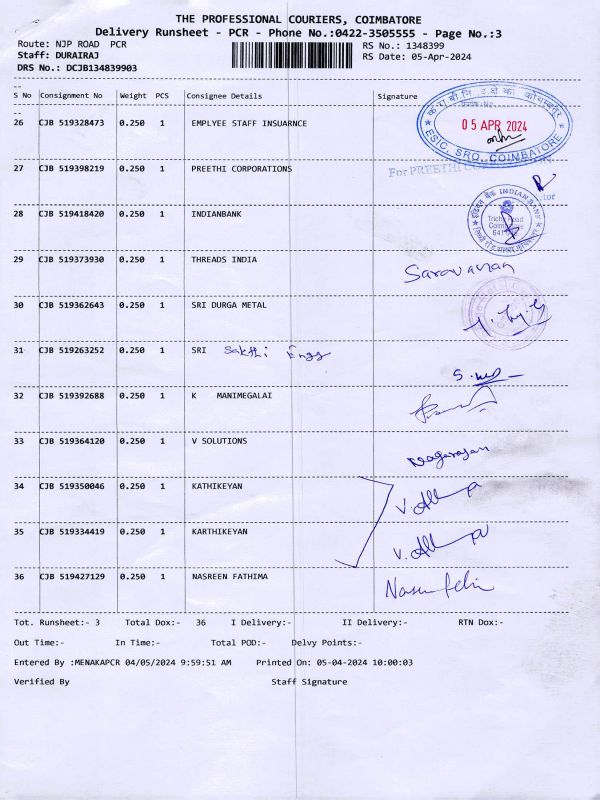 THE PROFESSIONAL COURIERS, COIMBATORE
Delivery Runsheet - PCR - Phone No.:0422-3505555 - Page No.:3
Route: NJP ROAD PCR RS No.: 1348399
Staff: DURAIRAJ RS Date: 05-Apr-2024
DRS No.: DCJB134839903
S No Consignment No Weight PCS Consignee Details Signature
26 CJB 519328473 0.250 1 EMPLYEE STAFF INSUARNCE
05 APR 2024
ESIC, SRO, COIMBATORE
27 CJB 519398219 0.250 1 PREETHI CORPORATIONS
For PREETHI
28 CJB 519418420 0.250 1 INDIANBANK
INDIAN BANK
29 CJB 519373930 0.250 1 THREADS INDIA Saravanan
30 CJB 519362643 0.250 1 SRI DURGA METAL
31 CJB 519263252 0.250 1 SRI Sakthi Engg
32 CJB 519392688 0.250 1 K MANIMEGALAI
33 CJB 519364120 0.250 1 V SOLUTIONS Nagarajan
34 CJB 519350046 0.250 1 KATHIKEYAN
35 CJB 519334419 0.250 1 KARTHIKEYAN
36 CJB 519427129 0.250 1 NASREEN FATHIMA
Tot. Runsheet:- 3 Total Dox:- 36 I Delivery:- II Delivery:- RTN Dox:-
Out Time:- In Time:- Total POD:- Delvy Points:-
Entered By :MENAKAPCR 04/05/2024 9:59:51 AM Printed On: 05-04-2024 10:00:03
Verified By Staff Signature